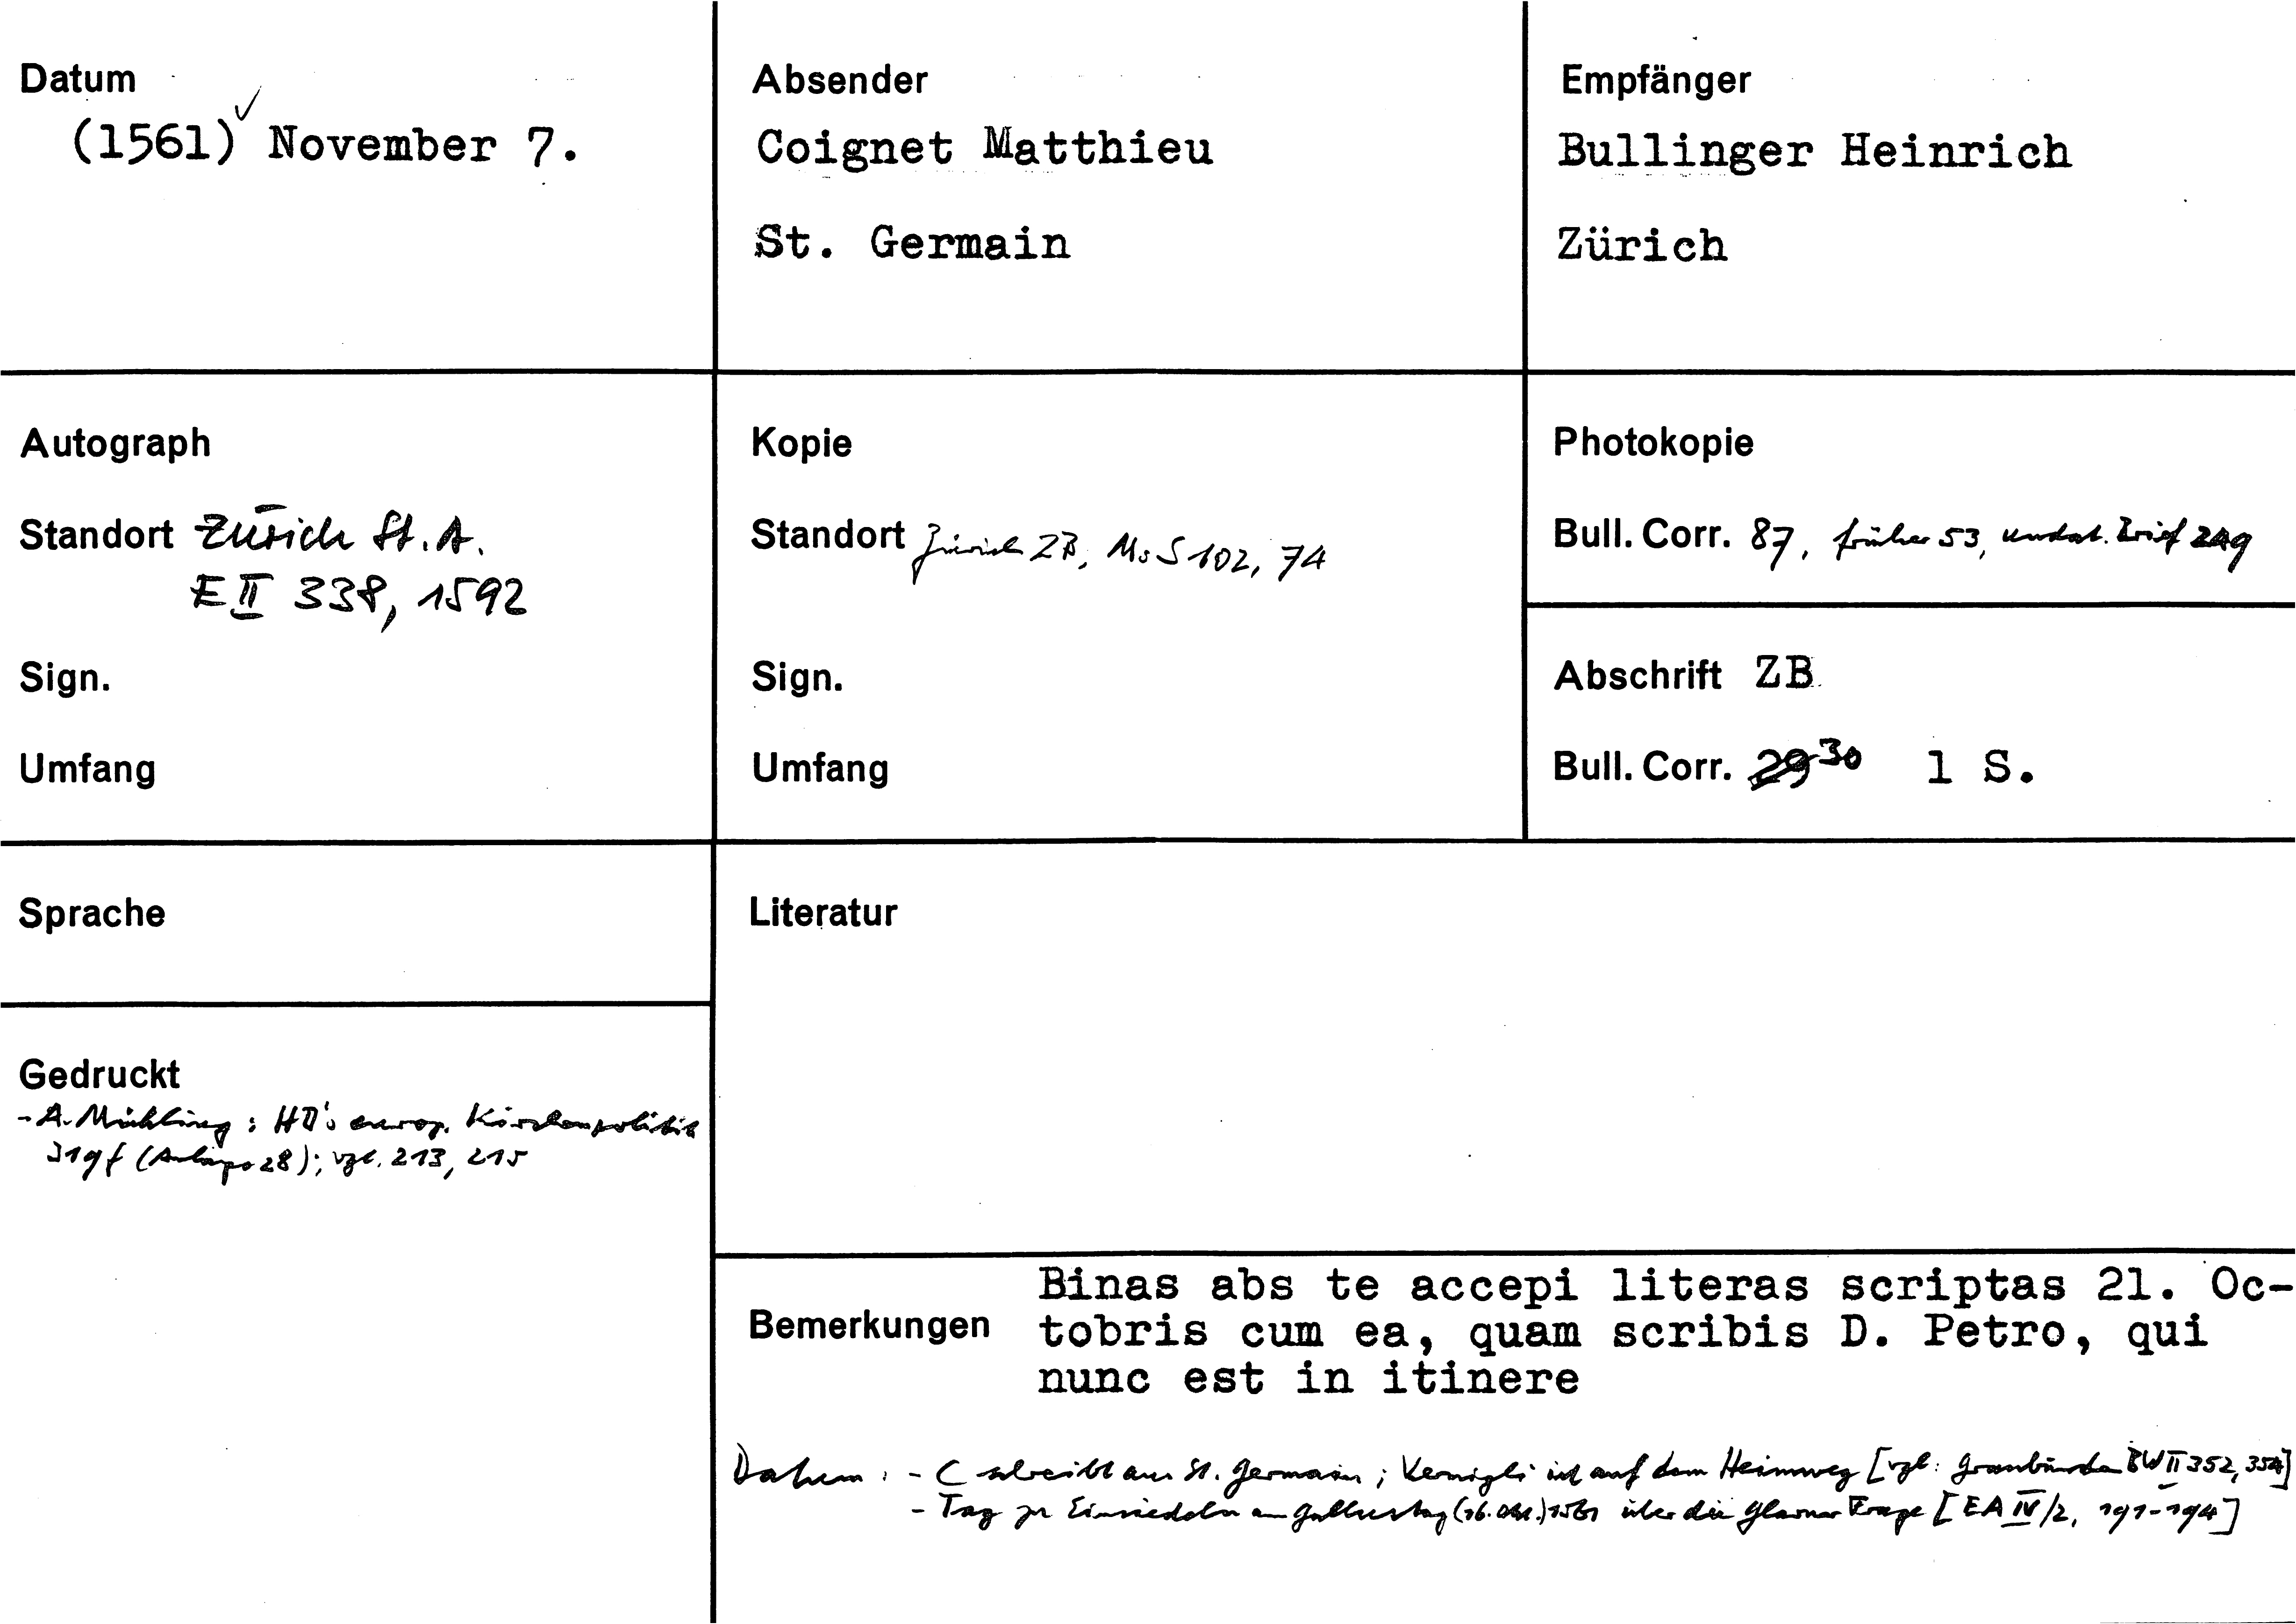 Datum
(1561) ✓ November 7.
Absender
Coignet Matthieu
St. Germain
Empfänger
Bullinger Heinrich
Zürich
Autograph
Standort Zürich St.A.
E II 338, 1592
Sign.
Umfang
Kopie
Standort Zürich ZB, Ms S 102, 74
Sign.
Umfang
Photokopie
Bull. Corr. 87, früher 53, undat. Brief 249
Abschrift ZB
Bull. Corr. 29 30 1 S.
Sprache
Literatur
Gedruckt
- A. Mühling: HB's europ. Kirchenpolitik
319f (Anhang 28); vgl. 213, 215
Bemerkungen
Binas abs te accepi literas scriptas 21. Oc-
tobris cum ea, quam scribis D. Petro, qui
nunc est in itinere
Datum: - C schreibt aus St. Germain; Vermigli ist auf dem Heimweg [vgl. Graubünden BW II 352, 354]
- Tag zu Einsiedeln am Gallustag (16. Okt.) 1561 über die Glarner Frage [EA IV/2, 191-194]